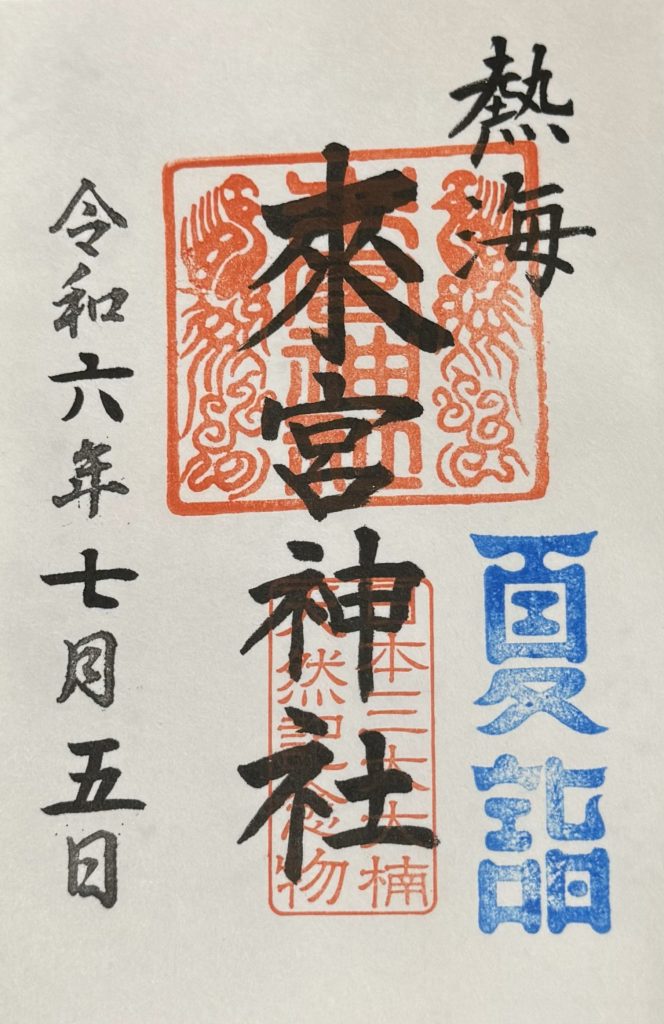 熱海
夏詣
來宮神社
來宮神社
日本三大大楠
天然記念物
令和六年七月五日